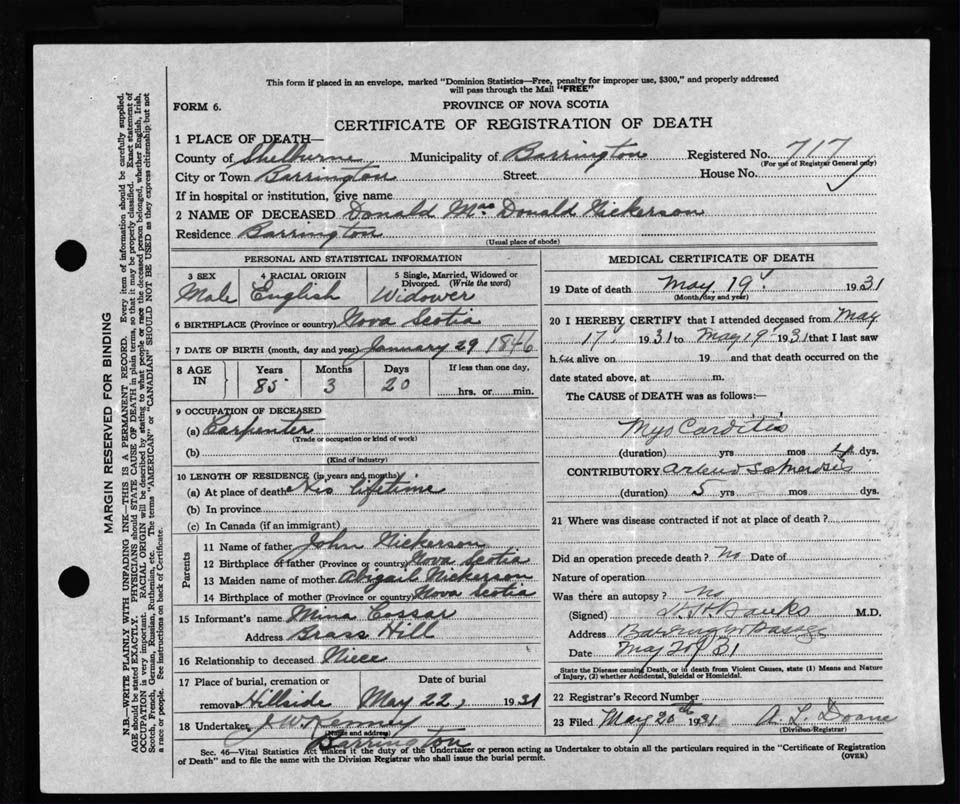 This form if placed in an envelope, marked "Dominion Statistics—Free, penalty for improper use, $300," and properly addressed
will pass through the Mail "FREE"
FORM 6.
PROVINCE OF NOVA SCOTIA
CERTIFICATE OF REGISTRATION OF DEATH
1 PLACE OF DEATH—
County of Shelburne Municipality of Barrington Registered No. 717
(For use of Registrar General only)
City or Town Barrington Street House No.
If in hospital or institution, give name
2 NAME OF DECEASED Donald Mac Donald Nickerson
Residence Barrington
(Usual place of abode)
PERSONAL AND STATISTICAL INFORMATION
3 SEX 4 RACIAL ORIGIN 5 Single, Married, Widowed or
Divorced. (Write the word)
Male English Widower
6 BIRTHPLACE (Province or country) Nova Scotia
7 DATE OF BIRTH (month, day and year) January 29 1846
8 AGE IN Years Months Days If less than one day,
85 3 20 hrs. or min.
9 OCCUPATION OF DECEASED
(a) Carpenter
(Trade or occupation or kind of work)
(b)
(Kind of industry)
10 LENGTH OF RESIDENCE (in years and months)
(a) At place of death His lifetime
(b) In province
(c) In Canada (if an immigrant)
Parents
11 Name of father John Nickerson
12 Birthplace of father (Province or country) Nova Scotia
13 Maiden name of mother Abigail Nickerson
14 Birthplace of mother (Province or country) Nova Scotia
15 Informant's name Mina Cossar
Address Brass Hill
16 Relationship to deceased Niece
17 Place of burial, cremation or Date of burial
removal Hillside May 22, 1931
18 Undertaker J W Kenney
(Name and address)
Barrington
MEDICAL CERTIFICATE OF DEATH
19 Date of death May 19 1931
(Month, day and year)
20 I HEREBY CERTIFY that I attended deceased from May
17 1931 to May 19 1931 that I last saw
h alive on 19 and that death occurred on the
date stated above, at m.
The CAUSE of DEATH was as follows:—
Myo Carditis
(duration) yrs mos dys.
CONTRIBUTORY
(duration) 5 yrs mos dys.
21 Where was disease contracted if not at place of death?
Did an operation precede death? No Date of
Nature of operation
Was there an autopsy? No
(Signed) Banks M.D.
Address Barrington Passage
Date May 20/31
State the Disease causing Death, or in death from Violent Causes, state (1) Means and Nature
of Injury, (2) whether Accidental, Suicidal or Homicidal.
22 Registrar's Record Number
23 Filed May 20th 1931 A. L. Doane
(Division Registrar)
Sec. 46—Vital Statistics Act makes it the duty of the Undertaker or person acting as Undertaker to obtain all the particulars required in the "Certificate of Registration
of Death" and to file the same with the Division Registrar who shall issue the burial permit.
(OVER)
MARGIN RESERVED FOR BINDING
N.B.—WRITE PLAINLY WITH UNFADING INK—THIS IS A PERMANENT RECORD. Every item of information should be carefully supplied.
AGE should be stated EXACTLY. PHYSICIANS should STATE CAUSE OF DEATH in plain terms, so that it may be properly classified. Exact statement of
OCCUPATION is very important. RACIAL ORIGIN will be described by stating to what people or race the deceased person belonged, whether English, Irish,
Scotch, French, German, Russian, Ruthenian, etc. The terms "AMERICAN" or "CANADIAN" SHOULD NOT BE USED as they express citizenship but not
a race or people. See instructions on back of Certificate.